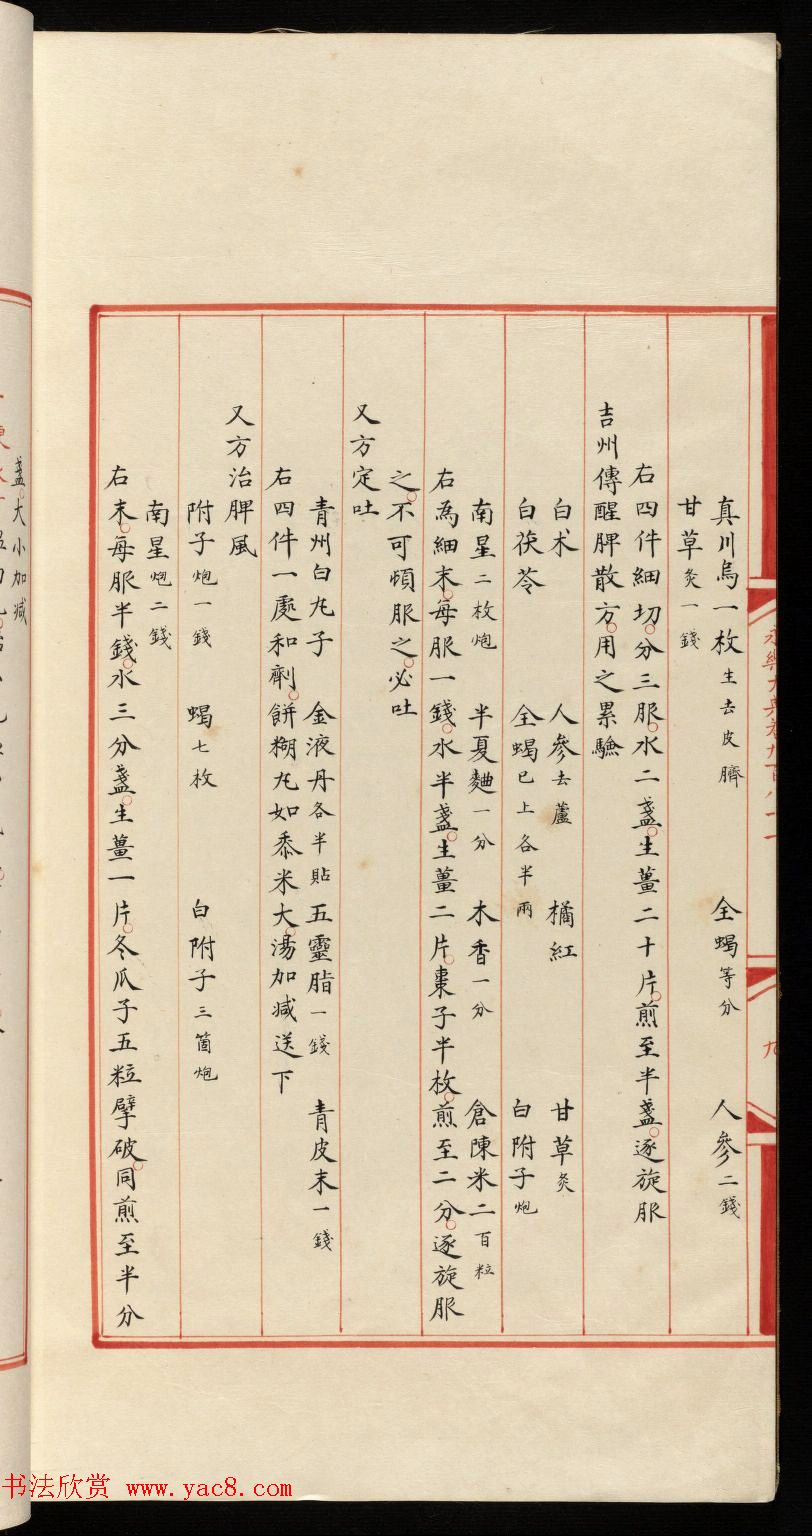 真川烏一枚生去皮臍 全蝎等分 人參二錢
甘草炙一錢
右四件細切分三服水二盞生薑二十片煎至半盞逐旋服
吉州傳醒脾散方用之累驗
白术 人參去蘆 橘紅 甘草炙
白茯苓 全蝎已上各半兩 白附子炮
南星二枚炮 半夏麯一分 木香一分 倉陳米二百粒
右為細末每服一錢水半盞生薑二片棗子半枚煎至二分逐旋服
之不可頓服之必吐
又方定吐
青州白丸子 金液丹各半貼 五靈脂一錢 青皮末一錢
右四件一處和劑餅糊丸如黍米大湯加減送下
又方治脾風
附子炮一錢 蝎七枚 白附子三箇炮
南星炮二錢
右末每服半錢水三分盞生薑一片冬瓜子五粒擘破同煎至半分
盞大小加減
书法欣赏 www.yac8.com